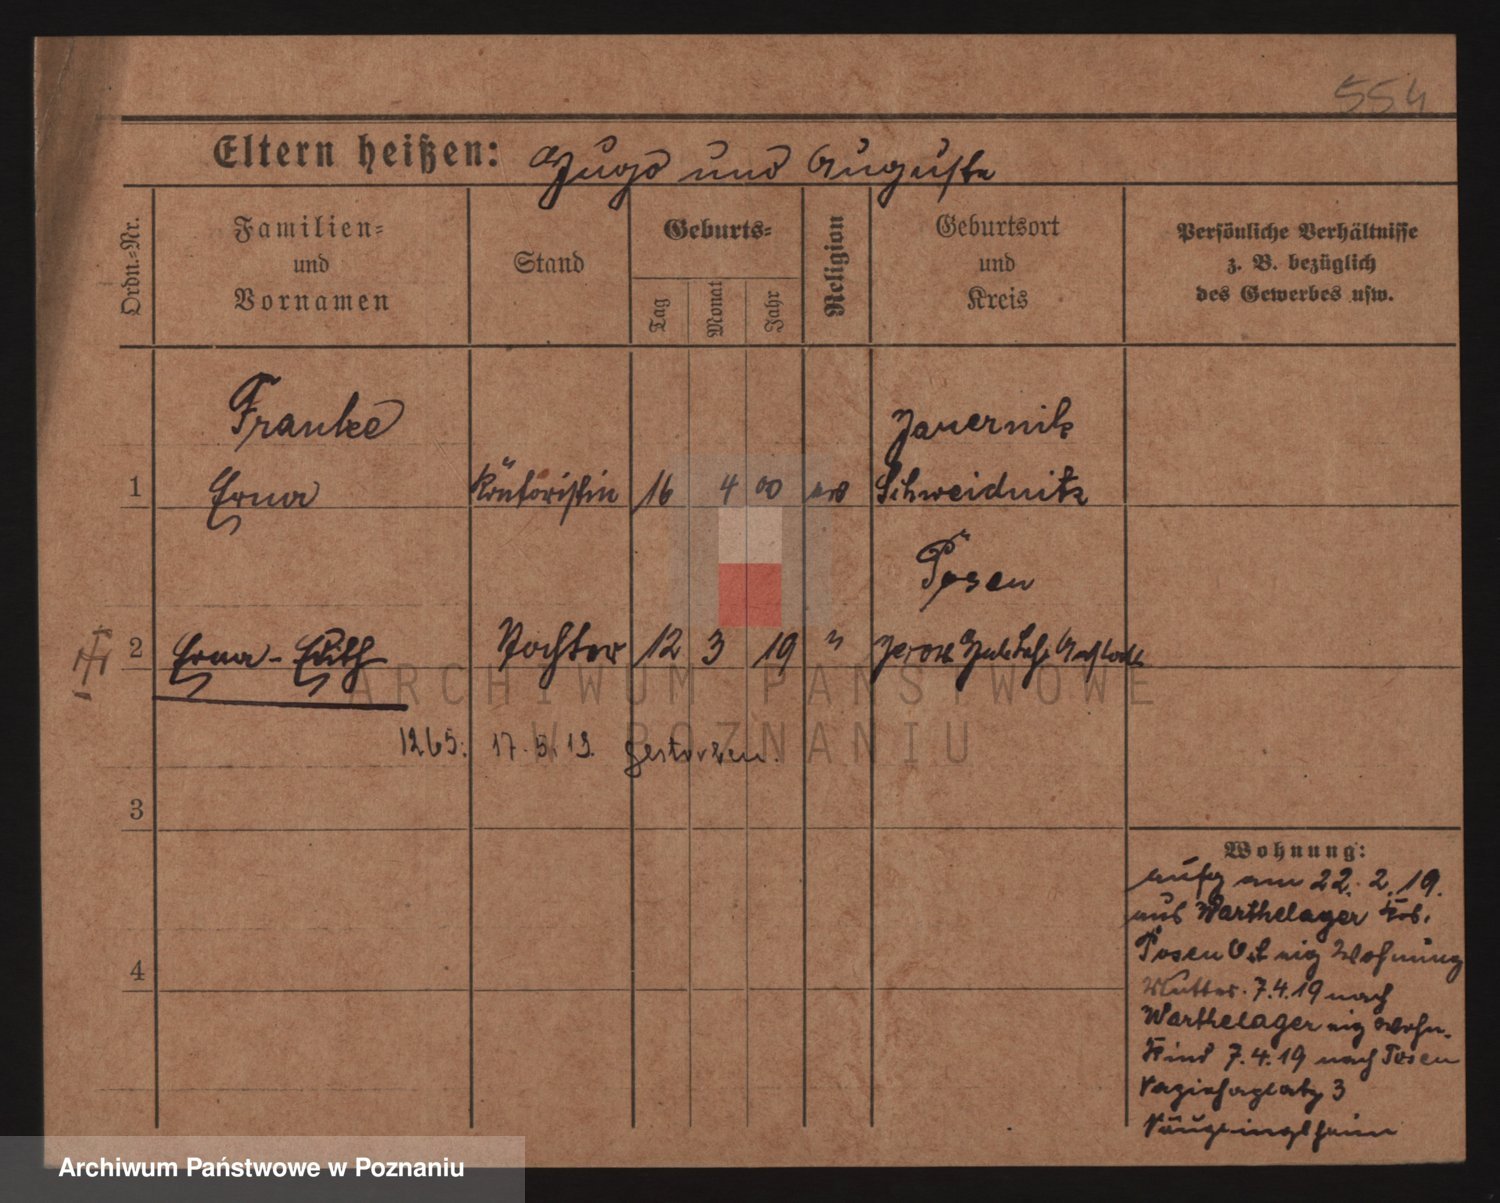 554
Eltern heißen: Hugo und Auguste
Ordn.-Nr.
Familien-
und
Vornamen
Stand
Geburts-
Tag
Monat
Jahr
Religion
Geburtsort
und
Kreis
Persönliche Verhältnisse
z. B. bezüglich
des Gewerbes usw.
Franke
Jauernik
1 Erna Kontoristin 16 4 00 ev Schweidnitz
Posen
2 Erna-Edith Tochter 12 3 19 "
1265. 17.5.19. gestorben.
3
4
Wohnung:
am 22.2.19.
aus Warthelager
Posen Wohnung
Mutter 7.4.19 nach
Warthelager eig Wohn.
Kind 7.4.19 nach Posen
3
Säuglingsheim
ARCHIWUM PAŃSTWOWE
W POZNANIU
Archiwum Państwowe w Poznaniu